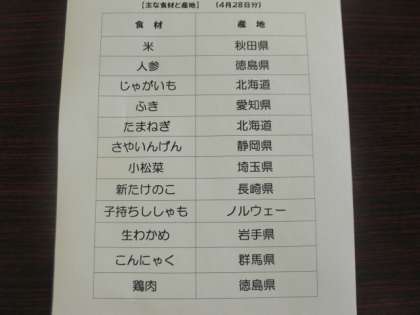 【主な食材と産地】 (4月28日分)
食材 産地
米 秋田県
人参 徳島県
じゃがいも 北海道
ふき 愛知県
たまねぎ 北海道
さやいんげん 静岡県
小松菜 埼玉県
新たけのこ 長崎県
子持ちししゃも ノルウェー
生わかめ 岩手県
こんにゃく 群馬県
鶏肉 徳島県